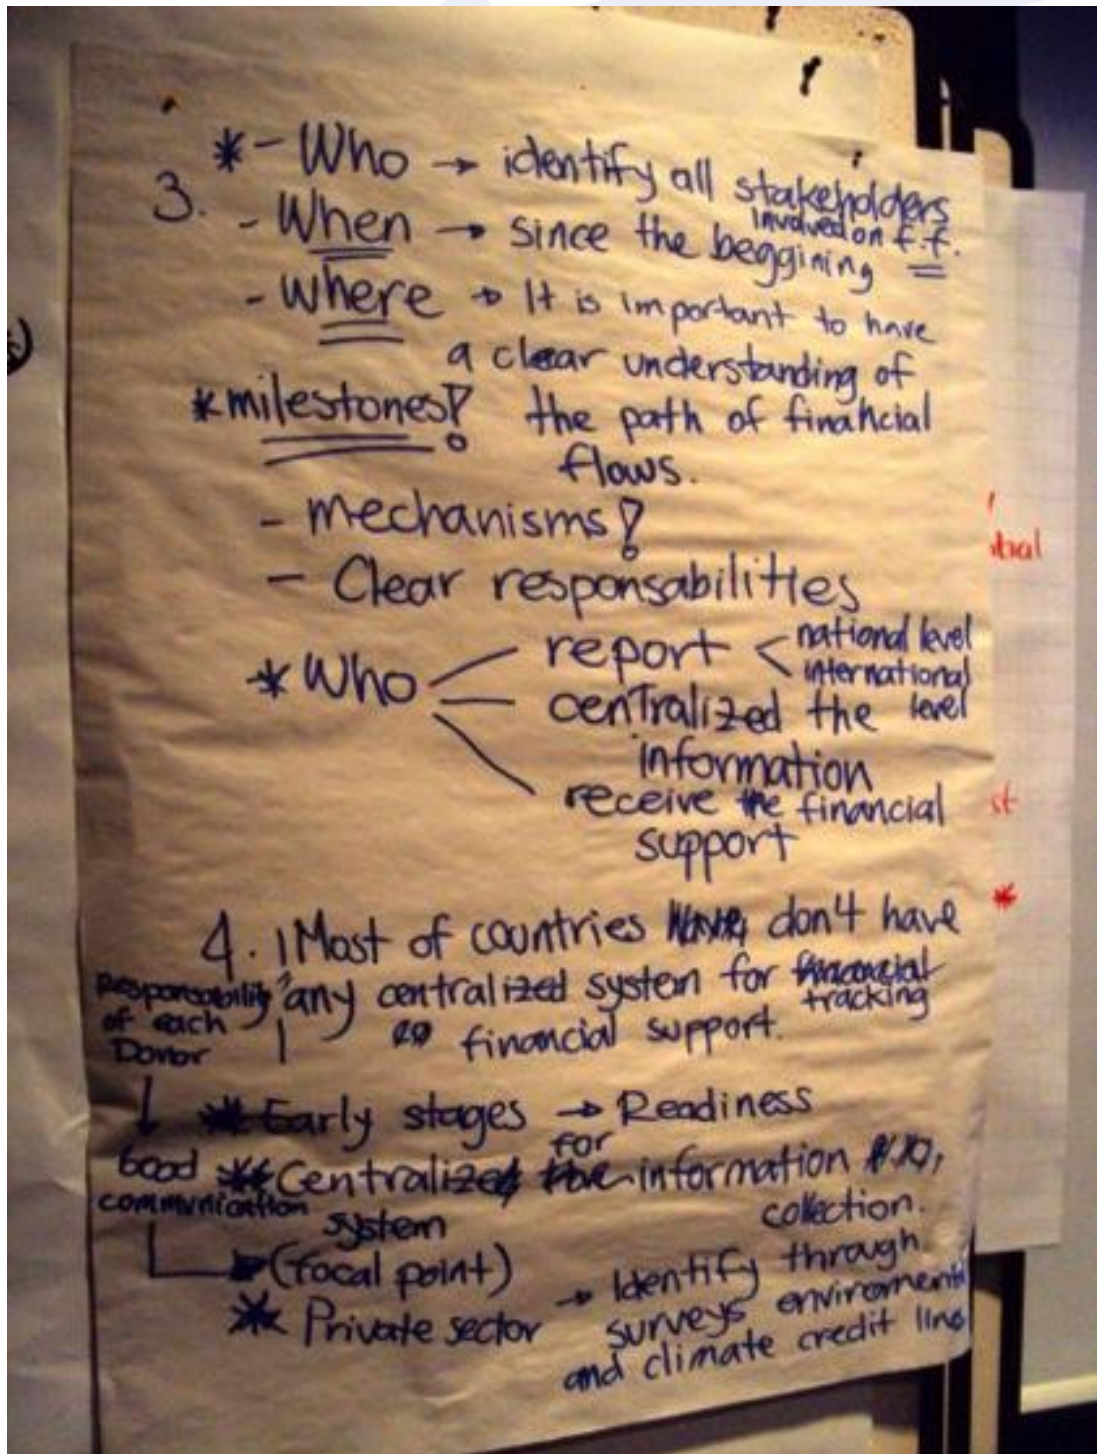 3. * - Who → identify all stakeholders
involved on f.f.
- When → since the beggining
- where → It is important to have
a clear understanding of
* milestones! the path of financial
flows.
- mechanisms!
- Clear responsabilities
* Who report < national level
international level
centralized the
information
receive the financial
support
4. Most of countries don't have
any centralized system for tracking
financial support.
Responsability
of each
Donor
↓
Good
communication
* Early stages → Readiness
** Centralized for information
system collection.
(focal point)
* Private sector → Identify through
surveys enviromental
and climate credit line
tial
st
*